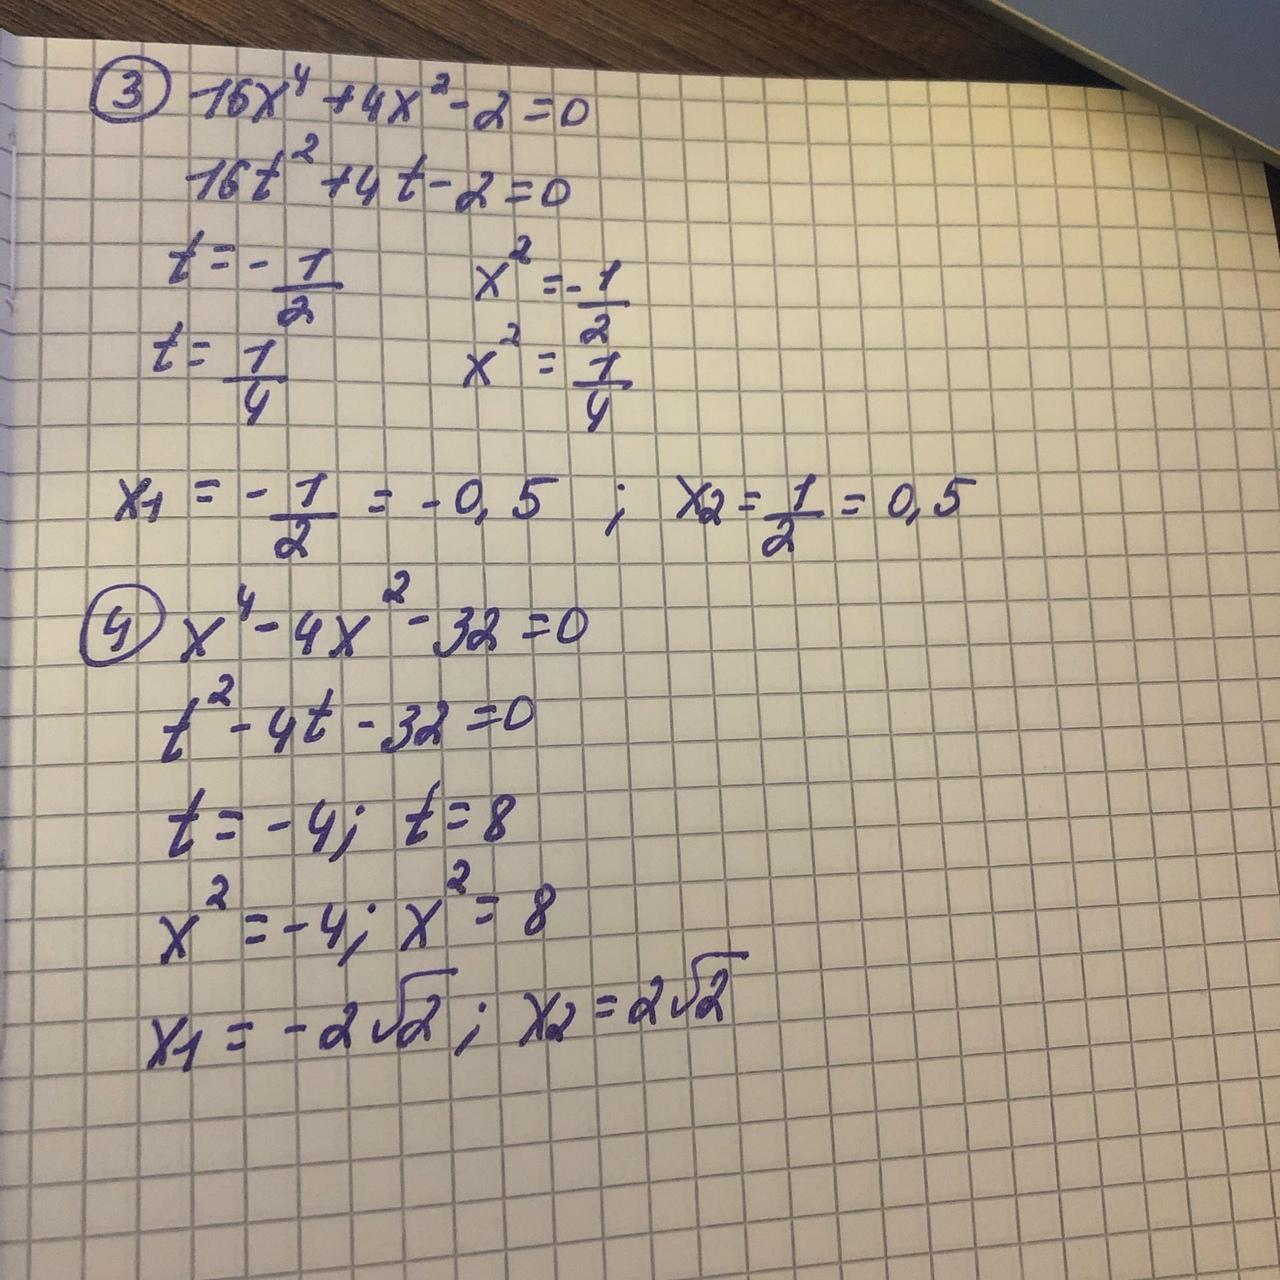 ③ 16x⁴ + 4x² - 2 = 0
16t² + 4t - 2 = 0
t = - 1/2    x² = - 1/2
t = 1/4    x² = 1/4
x₁ = - 1/2 = - 0,5 ; x₂ = 1/2 = 0,5
④ x⁴ - 4x² - 32 = 0
t² - 4t - 32 = 0
t = - 4; t = 8
x² = - 4; x² = 8
x₁ = - 2√2 ; x₂ = 2√2